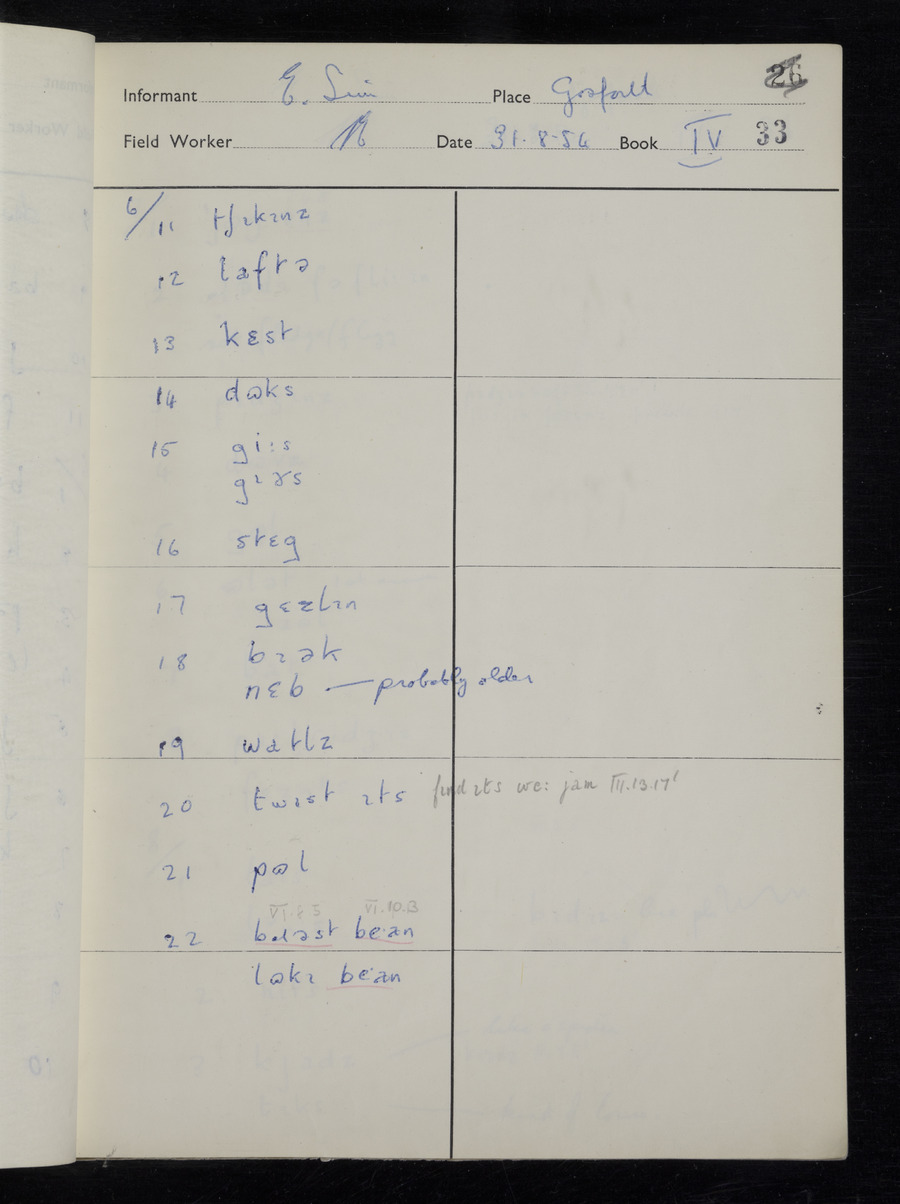 Informant E. Place Gosforth 26
Field Worker Date 31.8.54 Book IV 33
6/11 tʃɪkɪnz
12 laftə
13 kɛst
14 dɷks
15 gi:s
gɪɤs
16 stɛg
17 gɛzlɪn
18 bɪək
nɛb — probably older
19 watlz
20 twɪst ɪts find ɪts we: jam III.13.17'
21 pɷl
VI. 5 VI.10.3
22 bɹɪəst
lɷkɪ